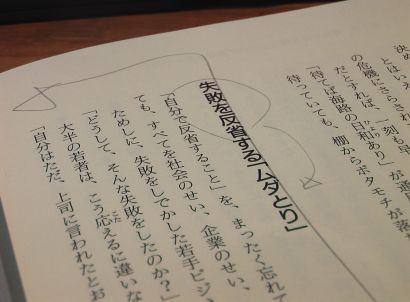 決め
とはいえ、
の危機にさらされ
だとすれば、一刻も早
「待てば海路の日和あり」
待っていても、棚からボタモチが落
失敗を反省する「ムダとり」
「自分で反省すること」を、まったく忘れて
ても、すべてを社会のせい、企業のせい、
ためしに、失敗をしでかした若手ビジ
「どうして、そんな失敗をしたのか？」
大半の若者は、こう応えるに違いな
「自分はただ、上司に言われたとお